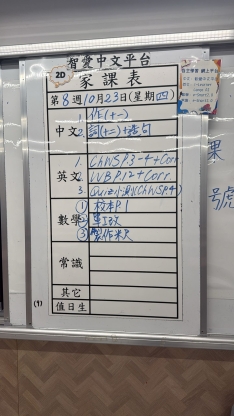 智愛中文平台
2D
家課表
第8週10月23日(星期四)
中文
1. 作(十一)
2. 詞(十二)+語句
英文
1. ChWSP.3-4+Corr
2. WBP.12+Corr.
3. Quiz小測(ChWSP4)
數學
① 校本P.1
② 單1改
③ 製作米尺
常識
其它
值日生
(7)
果
號